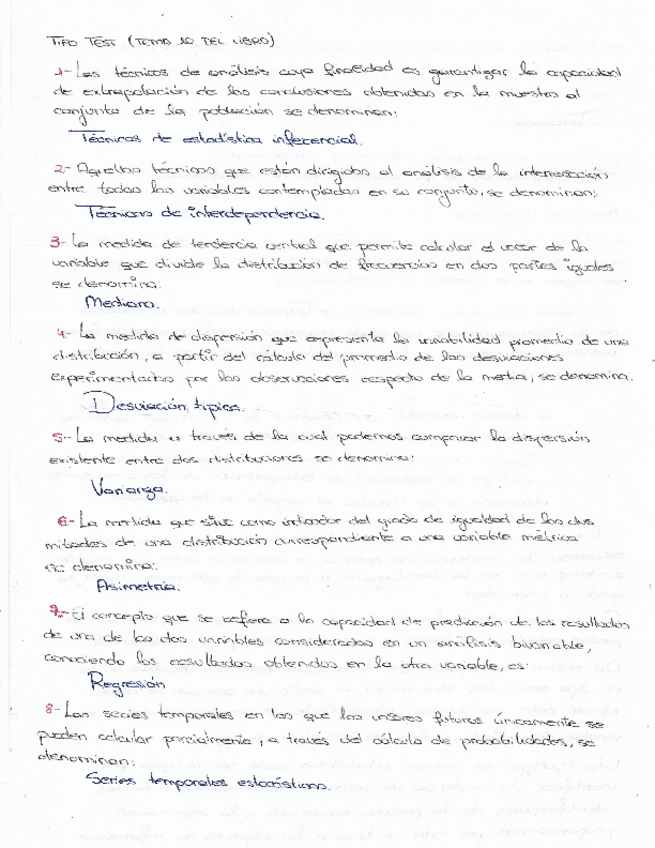 TIPO TEST (TEMA 10 DEL LIBRO)
1- Las técnicas de análisis cuya finalidad es garantizar la capacidad
de extrapolación de las conclusiones obtenidas en la muestra al
conjunto de la población se denominan:
Técnicas de estadística inferencial.
2- Aquellas técnicas que están dirigidas al análisis de la interrelación
entre todas las variables contempladas en su conjunto, se denominan:
Técnicas de interdependencia.
3- La medida de tendencia central que permite calcular el valor de la
variable que divide la distribución de frecuencias en dos partes iguales
se denomina:
Mediana.
4- La medida de dispersión que representa la variabilidad promedio de una
distribución, a partir del cálculo del promedio de las desviaciones
experimentadas por las observaciones respecto de la media, se denomina.
Desviación típica.
5- La medida a través de la cual podemos comparar la dispersión
existente entre dos distribuciones se denomina:
Varianza.
6- La medida que sirve como indicador del grado de igualdad de las dos
mitades de una distribución correspondiente a una variable métrica
se denomina:
Asimetría.
7- El concepto que se refiere a la capacidad de predicción de los resultados
de una de las dos variables consideradas en un análisis bivariable,
conociendo los resultados obtenidos en la otra variable, es:
Regresión
8- Las series temporales en las que los valores futuros únicamente se
pueden calcular parcialmente, a través del cálculo de probabilidades, se
denominan:
Series temporales estocásticas.